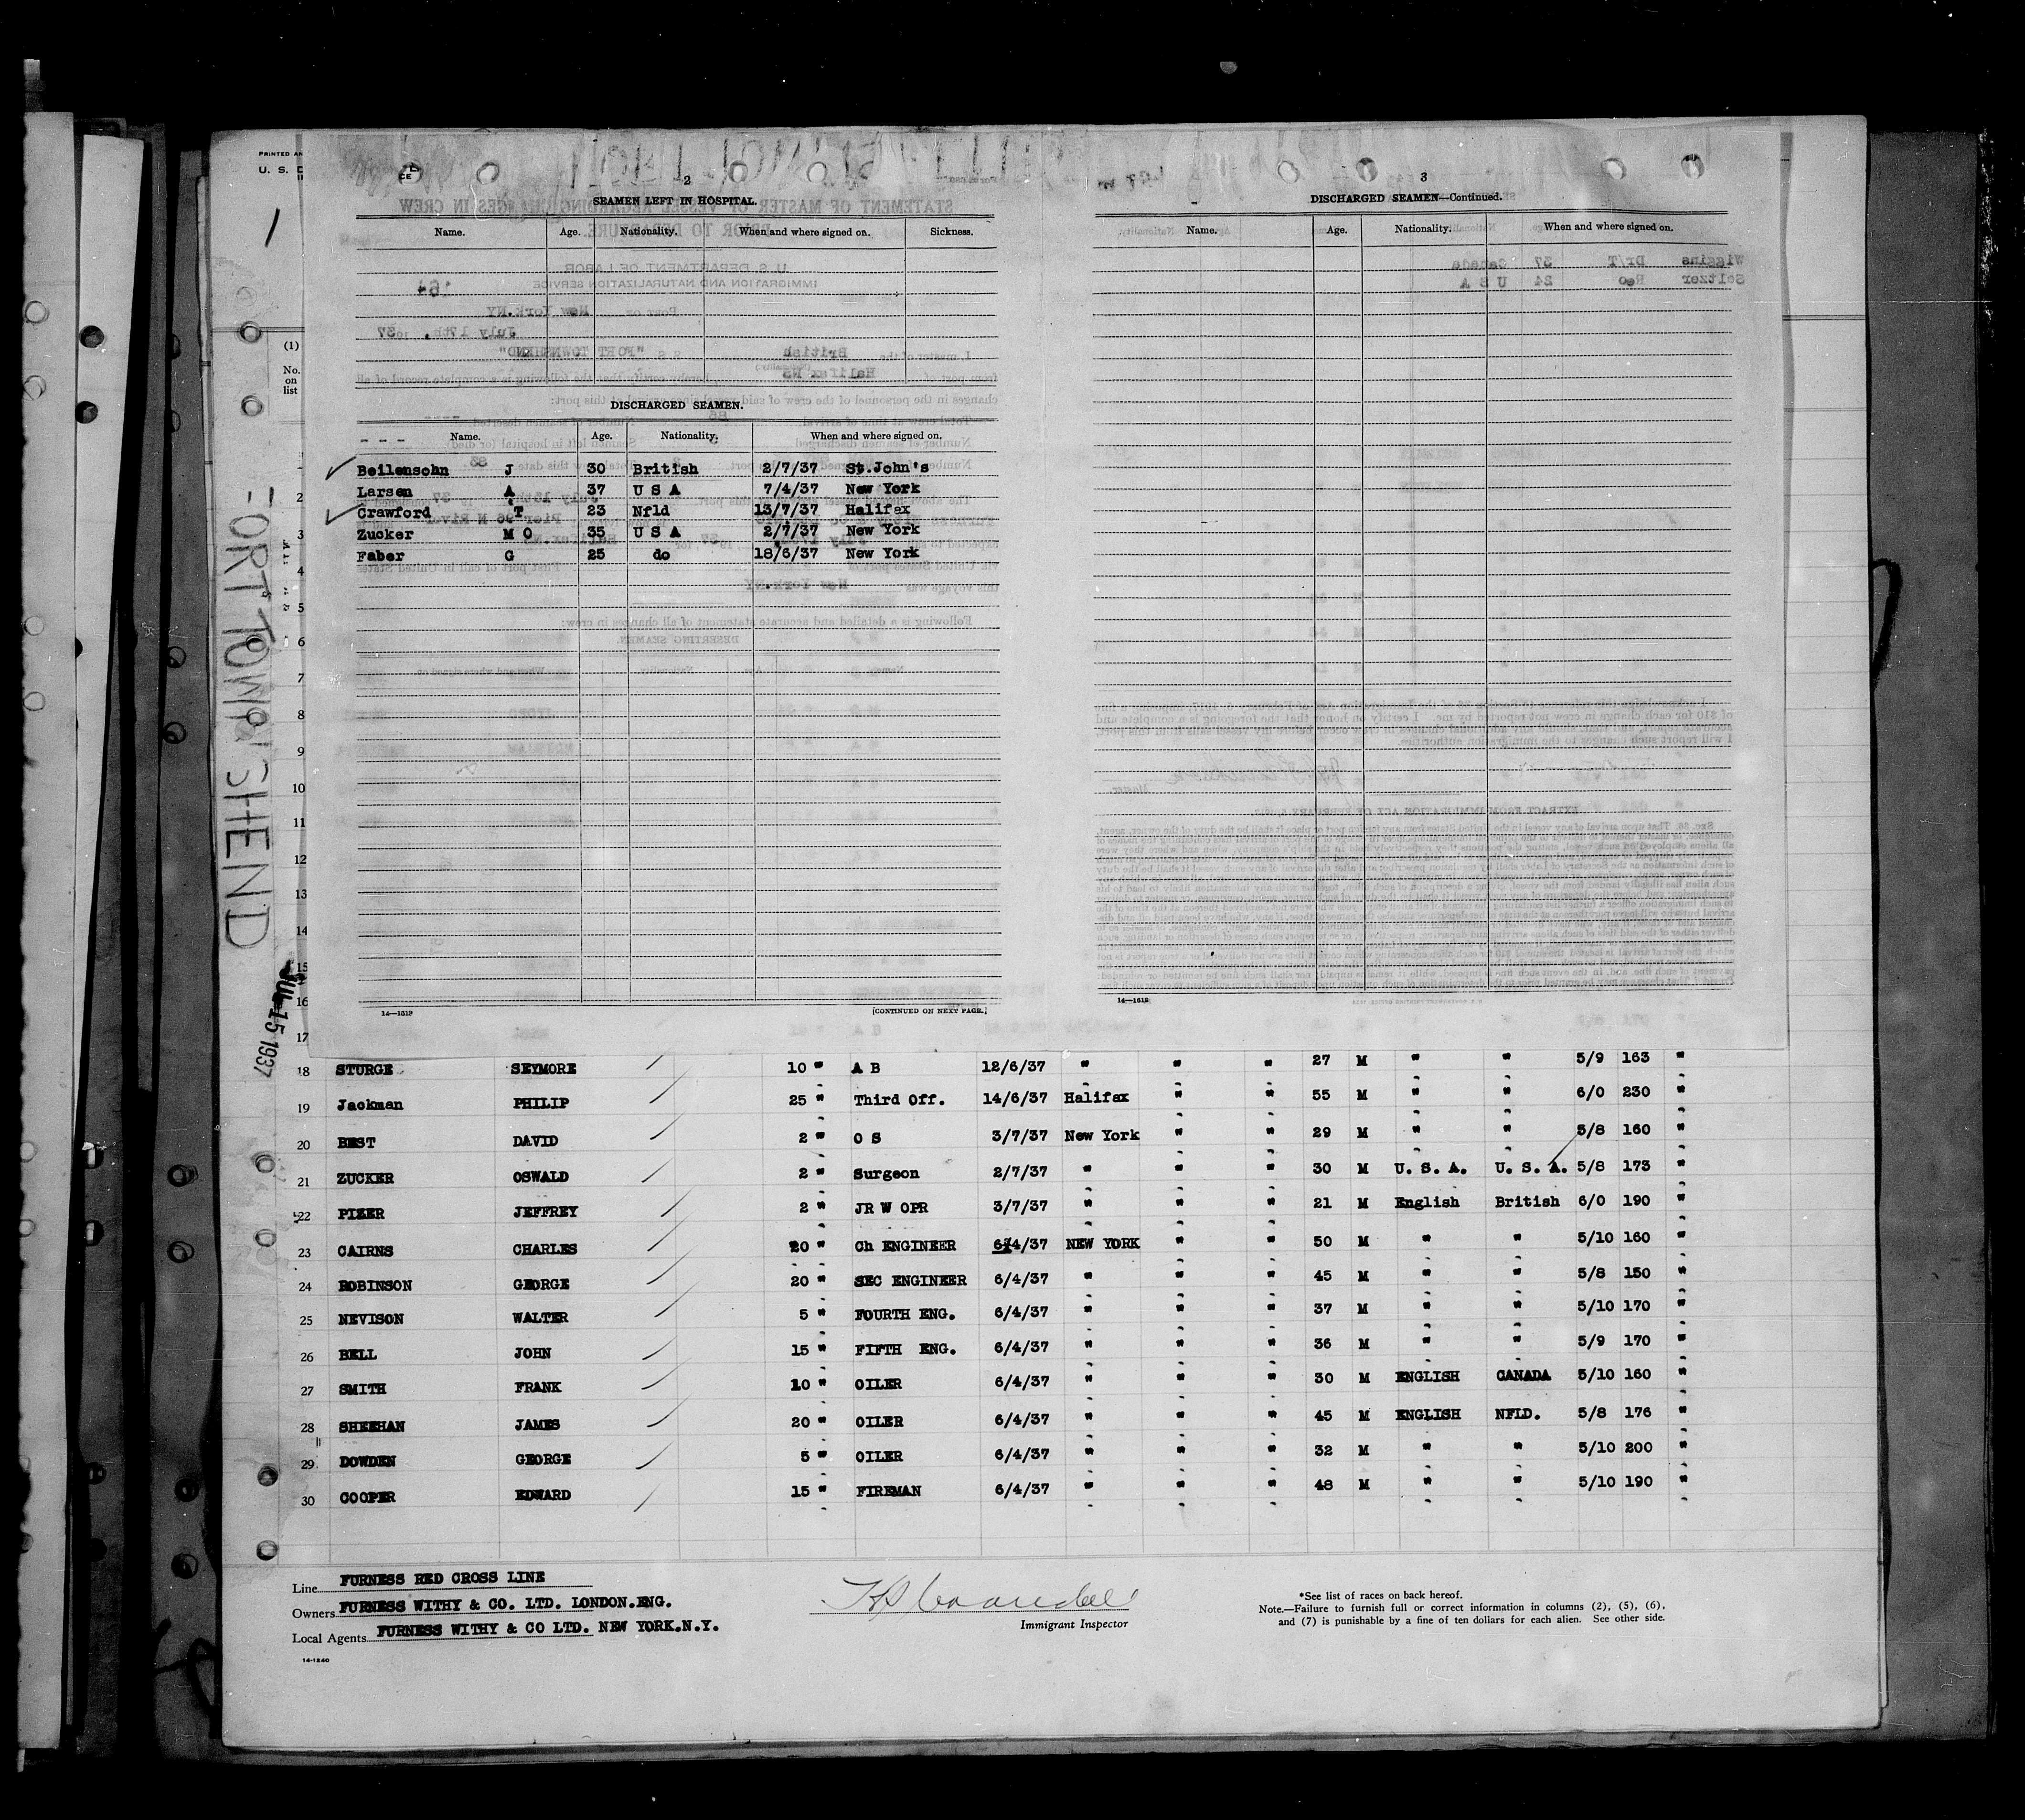 PRINTED AN
U. S. D
2
SEAMEN LEFT IN HOSPITAL.
Name. Age. Nationality. When and where signed on. Sickness.
DISCHARGED SEAMEN.
- - - Name. Age. Nationality. When and where signed on.
Beilensohn J 30 British 2/7/37 St.John's
Larsen A 37 U S A 7/4/37 New York
Crawford T 23 Nfld 13/7/37 Halifax
Zucker M O 35 U S A 2/7/37 New York
Faber G 25 do 18/6/37 New York
14—1619 [CONTINUED ON NEXT PAGE.]
3
DISCHARGED SEAMEN—Continued.
Name. Age. Nationality. When and where signed on.
14—1619
(1)
No.
on
list
1
2
3
4
5
6
7
8
9
10
11
12
13
14
15
16
17
FORT TOWNSHEND
JUL 15 1937
18 STURGE SEYMORE 10 " A B 12/6/37 " " " 27 M " " 5/9 163 "
19 Jackman PHILIP 25 " Third Off. 14/6/37 Halifax " " 55 M " " 6/0 230 "
20 BEST DAVID 2 " O S 3/7/37 New York " " 29 M " " 5/8 160 "
21 ZUCKER OSWALD 2 " Surgeon 2/7/37 " " " 30 M U. S. A. U. S. A. 5/8 173 "
22 PIZER JEFFREY 2 " JR W OPR 3/7/37 " " " 21 M English British 6/0 190 "
23 CAIRNS CHARLES 20 " Ch ENGINEER 6/4/37 NEW YORK " " 50 M " " 5/10 160 "
24 ROBINSON GEORGE 20 " SEC ENGINEER 6/4/37 " " " 45 M " " 5/8 150 "
25 NEVISON WALTER 5 " FOURTH ENG. 6/4/37 " " " 37 M " " 5/10 170 "
26 BELL JOHN 15 " FIFTH ENG. 6/4/37 " " " 36 M " " 5/9 170 "
27 SMITH FRANK 10 " OILER 6/4/37 " " " 30 M ENGLISH CANADA 5/10 160 "
28 SHEEHAN JAMES 20 " OILER 6/4/37 " " " 45 M ENGLISH NFLD. 5/8 176 "
29 DOWDEN GEORGE 5 " OILER 6/4/37 " " " 32 M " " 5/10 200 "
30 COOPER EDWARD 15 " FIREMAN 6/4/37 " " " 48 M " " 5/10 190 "
Line FURNESS RED CROSS LINE
Owners FURNESS WITHY & CO. LTD. LONDON.ENG.
Local Agents FURNESS WITHY & CO LTD. NEW YORK.N.Y.
14-1240
Immigrant Inspector
*See list of races on back hereof.
Note.—Failure to furnish full or correct information in columns (2), (5), (6),
and (7) is punishable by a fine of ten dollars for each alien. See other side.